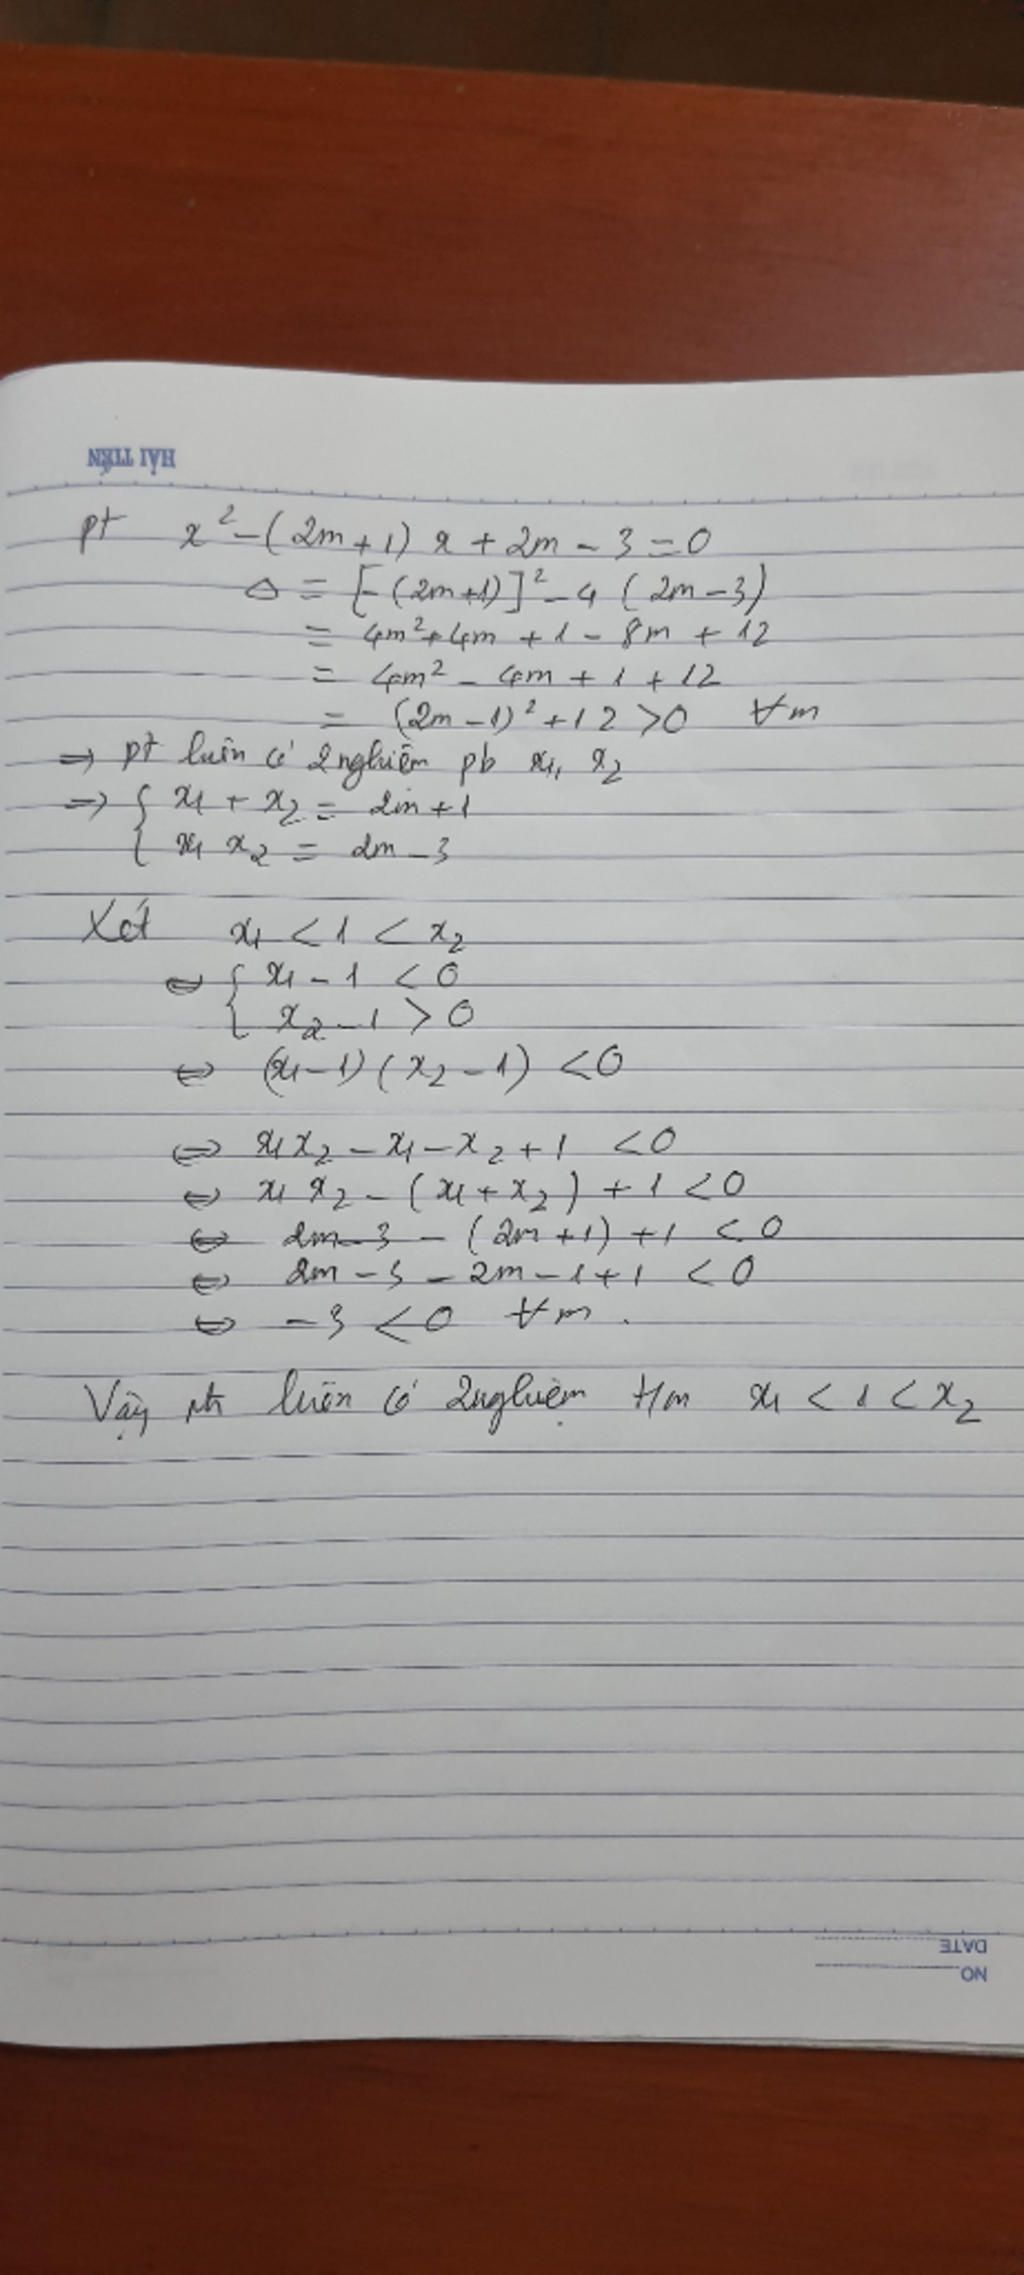 HẢI TIẾN
pt x² - (2m+1) x + 2m - 3 = 0
Δ = [-(2m+1)]² - 4 (2m-3)
= 4m² + 4m + 1 - 8m + 12
= 4m² - 4m + 1 + 12
= (2m-1)² + 12 > 0 ∀m
=> pt luôn có 2 nghiệm pb x₁, x₂
=> { x₁ + x₂ = 2m+1
{ x₁ x₂ = 2m-3
Xét x₁ < 1 < x₂
<=> { x₁ - 1 < 0
{ x₂ - 1 > 0
<=> (x₁-1) (x₂-1) < 0
<=> x₁x₂ - x₁ - x₂ + 1 < 0
<=> x₁ x₂ - (x₁+x₂) + 1 < 0
<=> 2m-3 - (2m+1) + 1 < 0
<=> 2m - 3 - 2m - 1 + 1 < 0
<=> -3 < 0 ∀m.
Vậy pt luôn có 2 nghiệm t/m x₁ < 1 < x₂
DATE
NO